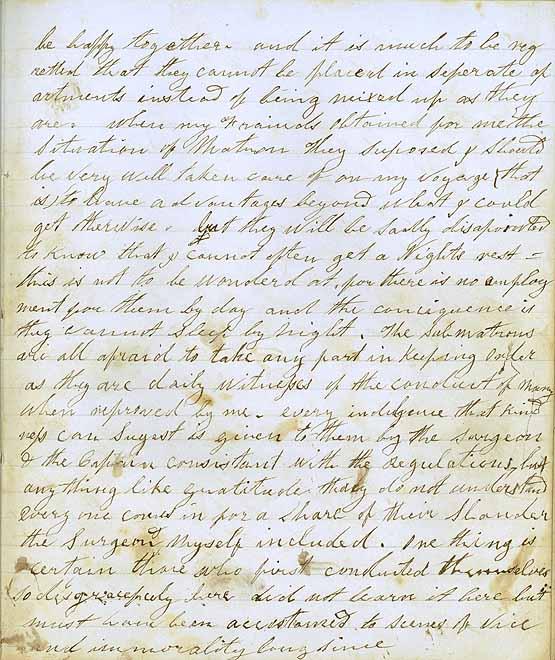 be happy together. and it is much to be reg
retted that they cannot be placed in seperate ap
artments instead of being mixed up as they
are. when my Frainds obtained for me the
situation of Matron they suposed I should
be very well taken care of on my voyage (that
is) to have advantages beyond what I could
get otherwise. but they will be sadly disapointed
to know that I cannot often get a Nights rest =
this is not to be wondered at, for there is no employ
ment for them by day and the consequence is
they cannot sleep by night. The submatrons
are all afraid to take any part in keeping order
as they are daily witness of the conduct of many
when reproved by me. every indulgence that kind
ness can Sugest is given to them by the Surgeon
& the Captain consistant with the regulations, but
anything like Gratitude they do not understand
every one comes in for a share of their Slander
the Surgeon & Myself included. One thing is
certain those who first conducted themselves
so disgracefuly here did not learn it here but
must have been accustomed to scenes of vice
and immorality long since